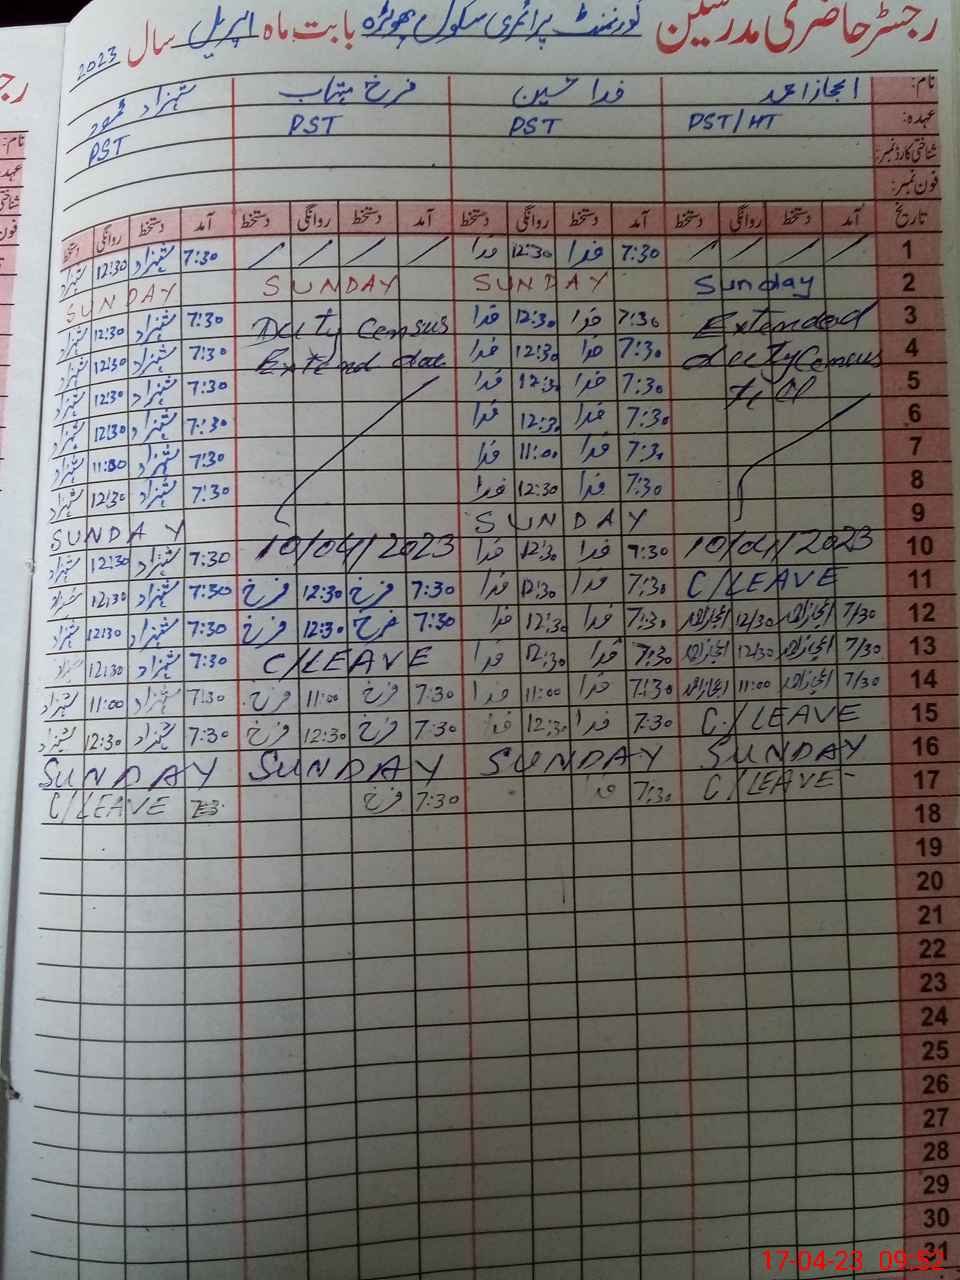 رجسٹر حاضری مدرسین گورنمنٹ پرائمری سکول بابت ماہ اپریل سال 2023
نام: اعجاز احمد فدا حسین فرخ مہتاب شہزاد محمود
عہدہ: PST/HT PST PST PST
شناختی کارڈ نمبر:
فون نمبر:
تاریخ آمد دستخط روانگی دستخط آمد دستخط روانگی دستخط آمد دستخط روانگی دستخط آمد دستخط روانگی دستخط
1 / / / / 7:30 فدا 12:30 فدا / / / / 7:30 شہزاد 12:30 شہزاد
2 Sunday SUNDAY SUNDAY SUNDAY
3 Extended 7:30 فدا 12:30 فدا Duty Census 7:30 شہزاد 12:30 شہزاد
4 duty Census 7:30 فدا 12:30 فدا Extend date 7:30 شہزاد 12:30 شہزاد
5 till 7:30 فدا 12:30 فدا 7:30 شہزاد 12:30 شہزاد
6 7:30 فدا 12:30 فدا 7:30 شہزاد 12:30 شہزاد
7 7:30 فدا 11:00 فدا 7:30 شہزاد 11:00 شہزاد
8 7:30 فدا 12:30 فدا 7:30 شہزاد 12:30 شہزاد
9 SUNDAY SUNDAY
10 10/04/2023 7:30 فدا 12:30 فدا 10/04/2023 7:30 شہزاد 12:30 شہزاد
11 C/LEAVE 7:30 فدا 12:30 فدا 7:30 فرخ 12:30 فرخ 7:30 شہزاد 12:30 شہزاد
12 7/30 اعجاز احمد 12/30 اعجاز احمد 7:30 فدا 12:30 فدا 7:30 فرخ 12:30 فرخ 7:30 شہزاد 12:30 شہزاد
13 7/30 اعجاز احمد 12/30 اعجاز احمد 7:30 فدا 12:30 فدا C/LEAVE 7:30 شہزاد 12:30 شہزاد
14 7/30 اعجاز احمد 11:00 اعجاز احمد 7:30 فدا 11:00 فدا 7:30 فرخ 11:00 فرخ 7:30 شہزاد 11:00 شہزاد
15 C/LEAVE 7:30 فدا 12:30 فدا 7:30 فرخ 12:30 فرخ 7:30 شہزاد 12:30 شہزاد
16 SUNDAY SUNDAY SUNDAY SUNDAY
17 C/LEAVE 7:30 فدا 7:30 فرخ C/LEAVE
18
19
20
21
22
23
24
25
26
27
28
29
30
31
17-04-23 09:52